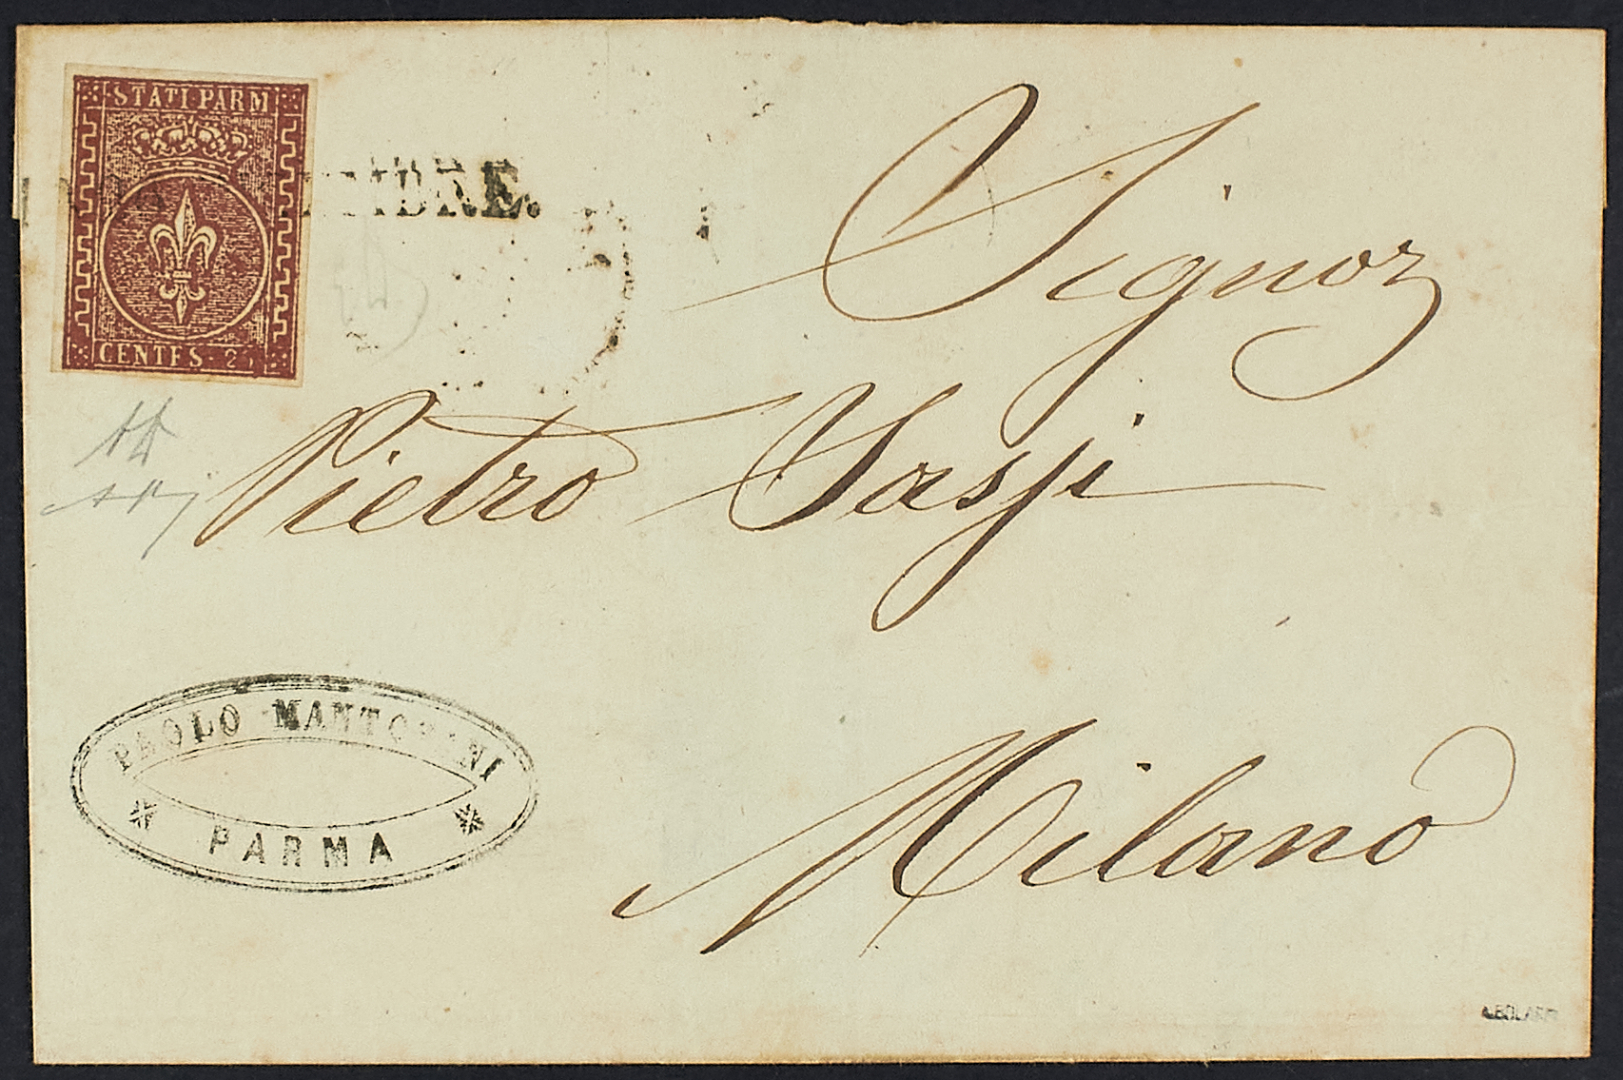 STATI PARM
CENTES 25
Signor
Pietro
Milano
PAOLO MANTOVANI
PARMA